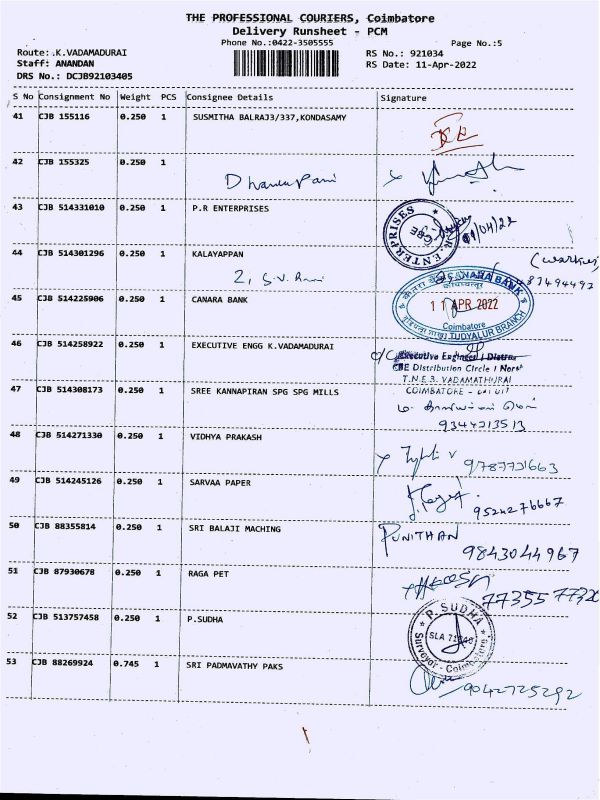 THE PROFESSIONAL COURIERS, Coimbatore
Delivery Runsheet - PCM
Phone No.:0422-3505555
Page No.:5
Route: .K.VADAMADURAI
RS No.: 921034
Staff: ANANDAN
RS Date: 11-Apr-2022
DRS No.: DCJB92103405
S No Consignment No Weight PCS Consignee Details Signature
41 CJB 155116 0.250 1 SUSMITHA BALRAJ3/337,KONDASAMY
42 CJB 155325 0.250 1
43 CJB 514331010 0.250 1 P.R ENTERPRISES
P.R. ENTERPRISES CBE
44 CJB 514301296 0.250 1 KALAYAPPAN
45 CJB 514225906 0.250 1 CANARA BANK
CANARA BANK
11 APR 2022
Coimbatore
TUDYALUR BRANCH
46 CJB 514258922 0.250 1 EXECUTIVE ENGG K.VADAMADURAI
Executive Engineer / Distrn
CBE Distribution Circle / North
T.N.E.B. VADAMATHURAI
47 CJB 514308173 0.250 1 SREE KANNAPIRAN SPG SPG MILLS
COIMBATORE -
9344213513
48 CJB 514271330 0.250 1 VIDHYA PRAKASH
9787731663
49 CJB 514245126 0.250 1 SARVAA PAPER
9524276667
50 CJB 88355814 0.250 1 SRI BALAJI MACHING
PUNITHAN
9843044967
51 CJB 87930678 0.250 1 RAGA PET
52 CJB 513757458 0.250 1 P.SUDHA
P. SUDHA
SLA
Surveyor - Coimbatore
53 CJB 88269924 0.745 1 SRI PADMAVATHY PAKS
9042725292